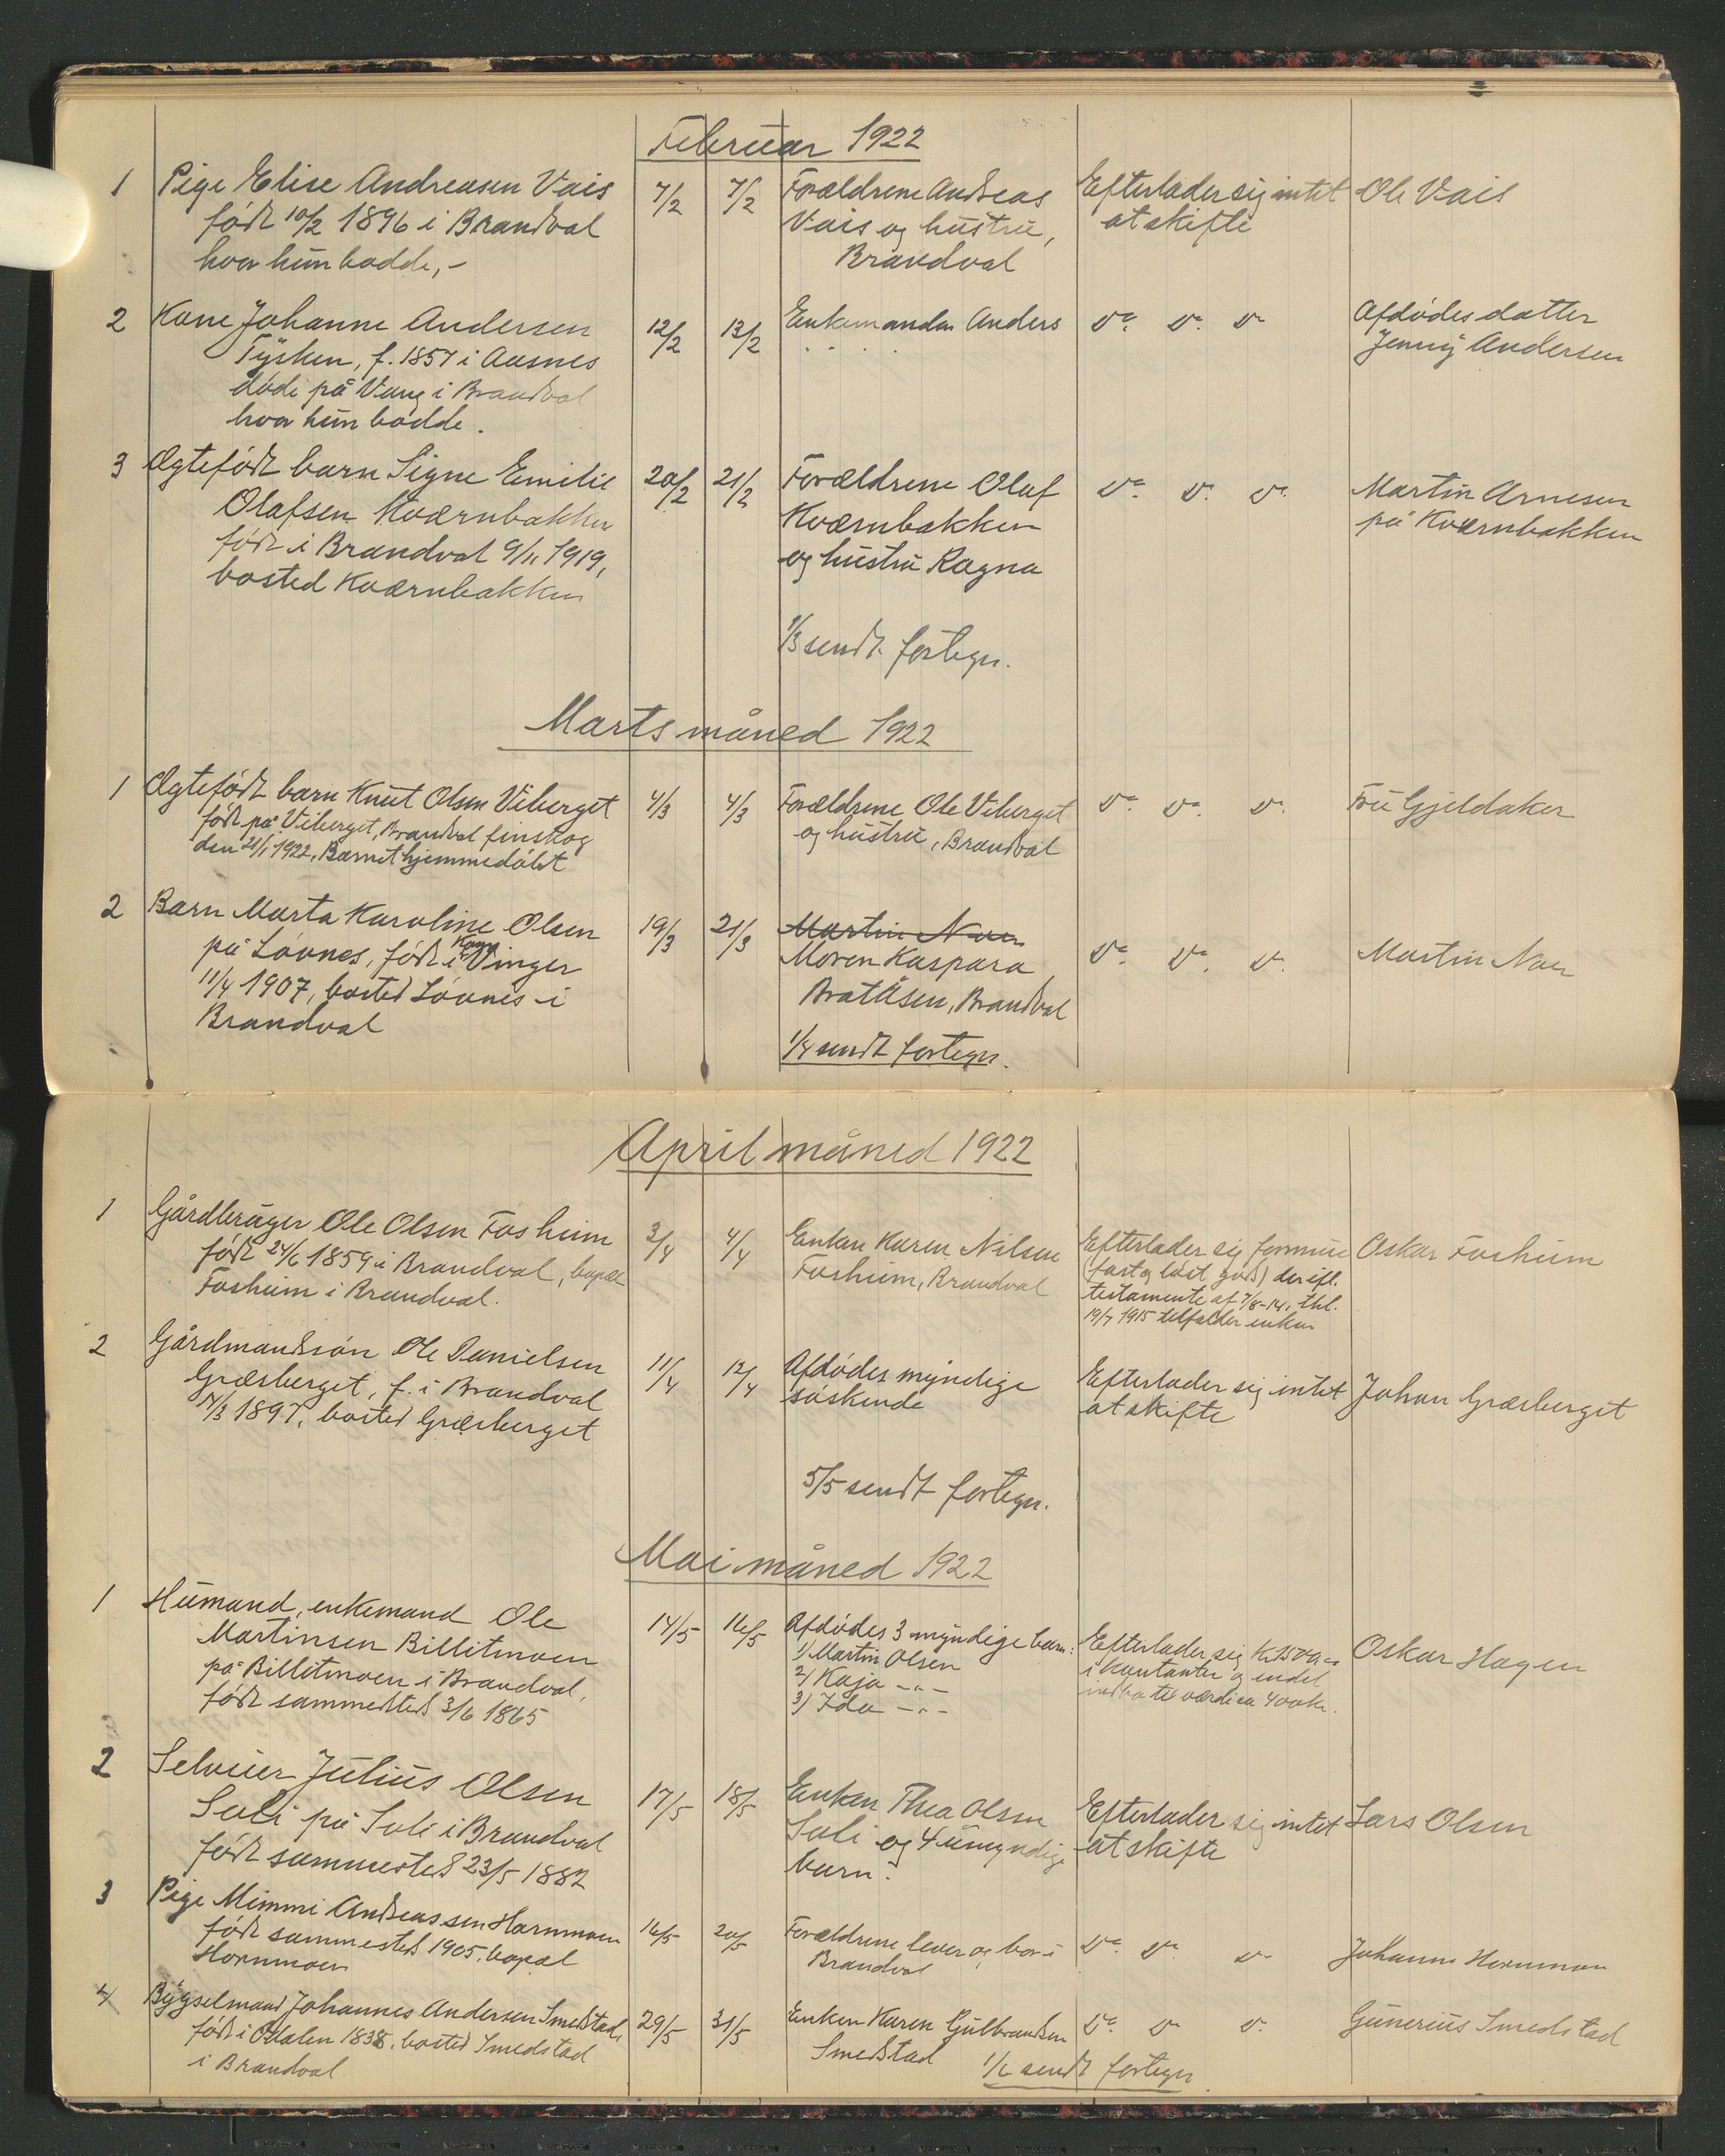 Februar 1922
1 Pige Elise Andreasen Vais 7/2 7/2 Forældrene Andreas Efterlader sig intet Ole Vais
født 10/2 1896 i Brandval Vais og hustru, at skifte
hvor hun bodde,- Brandval
2 Kone Johanne Andersen 12/2 13/2 Enkemanden Anders do. do. do. Afdødes datter
Tysken, f. 1857 i Aasnes Jenny Andersen
døde på Vang i Brandval
hvor hun bodde.
3 Ægtefødt barn Signe Emilie 20/2 21/2 Forældrene Olaf do. do. do. Martin Arnesen
Olafsen Kværnbakken Kværnbakken på Kværnbakken
født i Brandval 9/11 1919, og hustru Ragna
bosted Kværnbakken
1/3 sendt fortegn.
Marts måned 1922
1 Ægtefødt barn Knut Olsen Viberget 4/3 4/3 Forældrene Ole Viberget do. do. do. Fru Gjeldaker
født på Viberget, Brandval finskog og hustru, Brandval
den 21/1 1922, Barnet hjemmedøbt
2 Barn Marta Karoline Olsen 19/3 21/3 Martin Noer
på Løvnes, født i Vinger Moren Kaspara do. do. do. Martin Noer
11/4 1907, bosted Løvnes i Bratåsen, Brandval
Brandval
1/4 sendt fortegn.
April måned 1922
1 Gårdbruger Ole Olsen Fosheim 3/4 4/4 Enken Karen Nilsen Efterlader sig formue Oskar Fosheim
født 24/6 1859 i Brandval, bopæl Fosheim, Brandval (fast og løst gods) der ifl.
Fosheim i Brandval. testamente af 7/8-14, thl.
19/7 1915 tilfalder enken
2 Gårdmandssøn Ole Danielsen 11/4 12/4 Afdødes myndige Efterlader sig intet Johan Græsberget
Græsberget, f. i Brandval søskende at skifte
1897, bosted Græsberget
5/5 sendt fortegn.
Mai måned 1922
1 Husmand, enkemand Ole 14/5 16/5 Afdødes 3 myndige barn: Efterlader sig Oskar Hagen
Martinsen Billitmoen 1) Martin Olsen i kontanter og endel
på Billitmoen i Brandval, 2) Kaja -"- indbo til værdi ca 400 kr.
født sammesteds 3/6 1865 3) Ida -"-
2 Selveier Julius Olsen 17/5 18/5 Enken Thea Olsen Efterlader sig intet Lars Olsen
Soli på Soli i Brandval Soli og 4 umyndige at skifte
født sammesteds 23/5 1882 barn.
3 Pige Mimmi Andreassen Hornmoen 16/5 20/5 Forældrene lever og bor i do. do. do. Johannes Hornmoen
født sammesteds 1905, bopæl Brandval
Hornmoen
4 Bygselmand Johannes Andersen Smedstad, 29/5 31/5 Enken Karen Gulbrandsen do. do. do. Gunerius Smedstad
født i Odalen 1838, bosted Smedstad Smedstad
i Brandval 1/6 sendt fortegn.